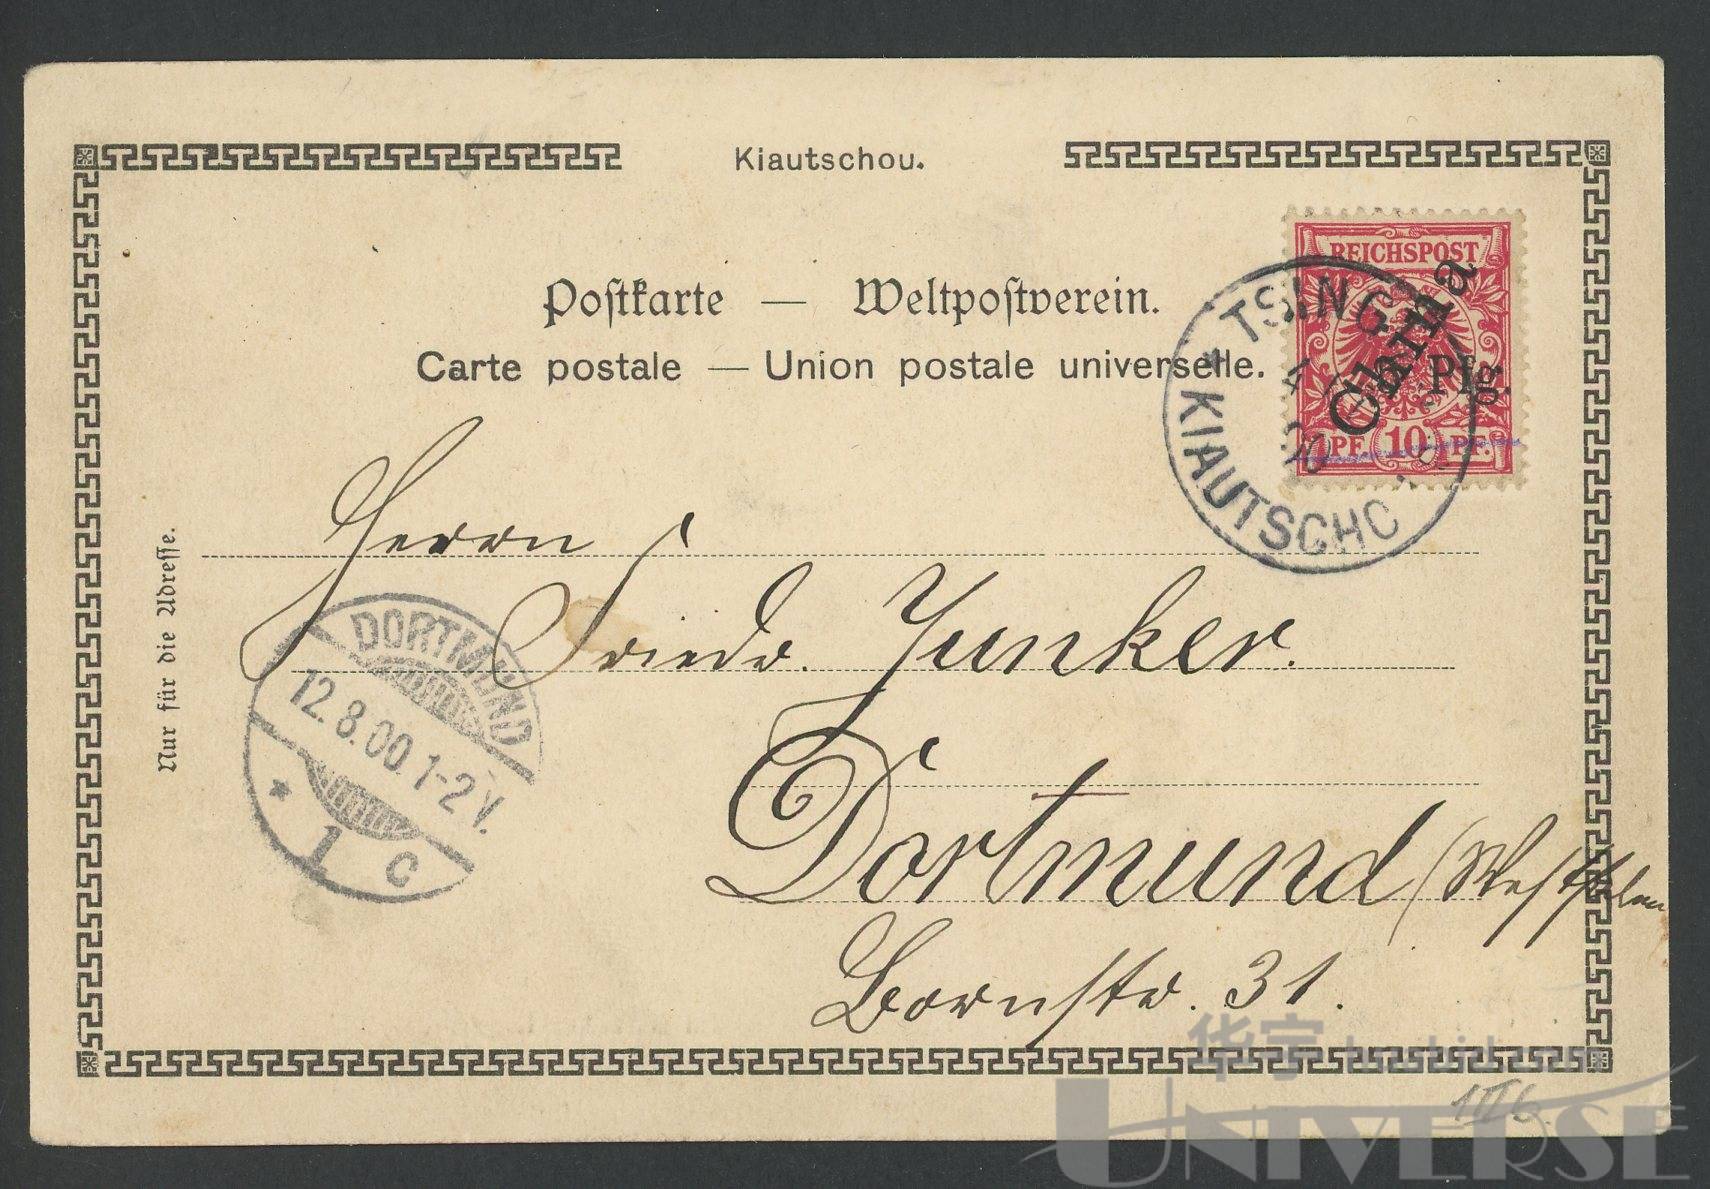 Kiautschou.
Postkarte — Weltpostverein.
Carte postale — Union postale universelle.
REICHSPOST
China
Pfg.
PF. 10 PF.
TSING
KIAUTSCHO
Nur für die Adresse.
Herrn
Friedr. Junker.
Dortmund (Westfalen
Bornstr. 31.
DORTMUND
12.8.00.1-2V.
* 1 c
华宇
UNIVERSE